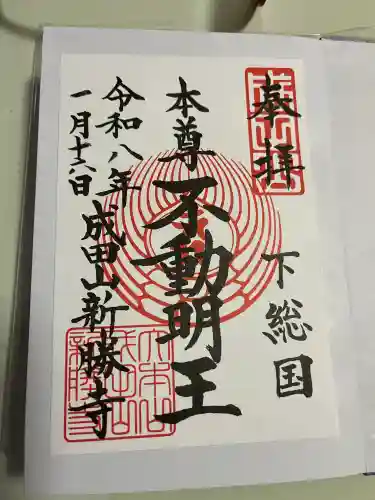 奉拝
下総国
本尊
不動明王
令和八年
一月十六日
成田山新勝寺